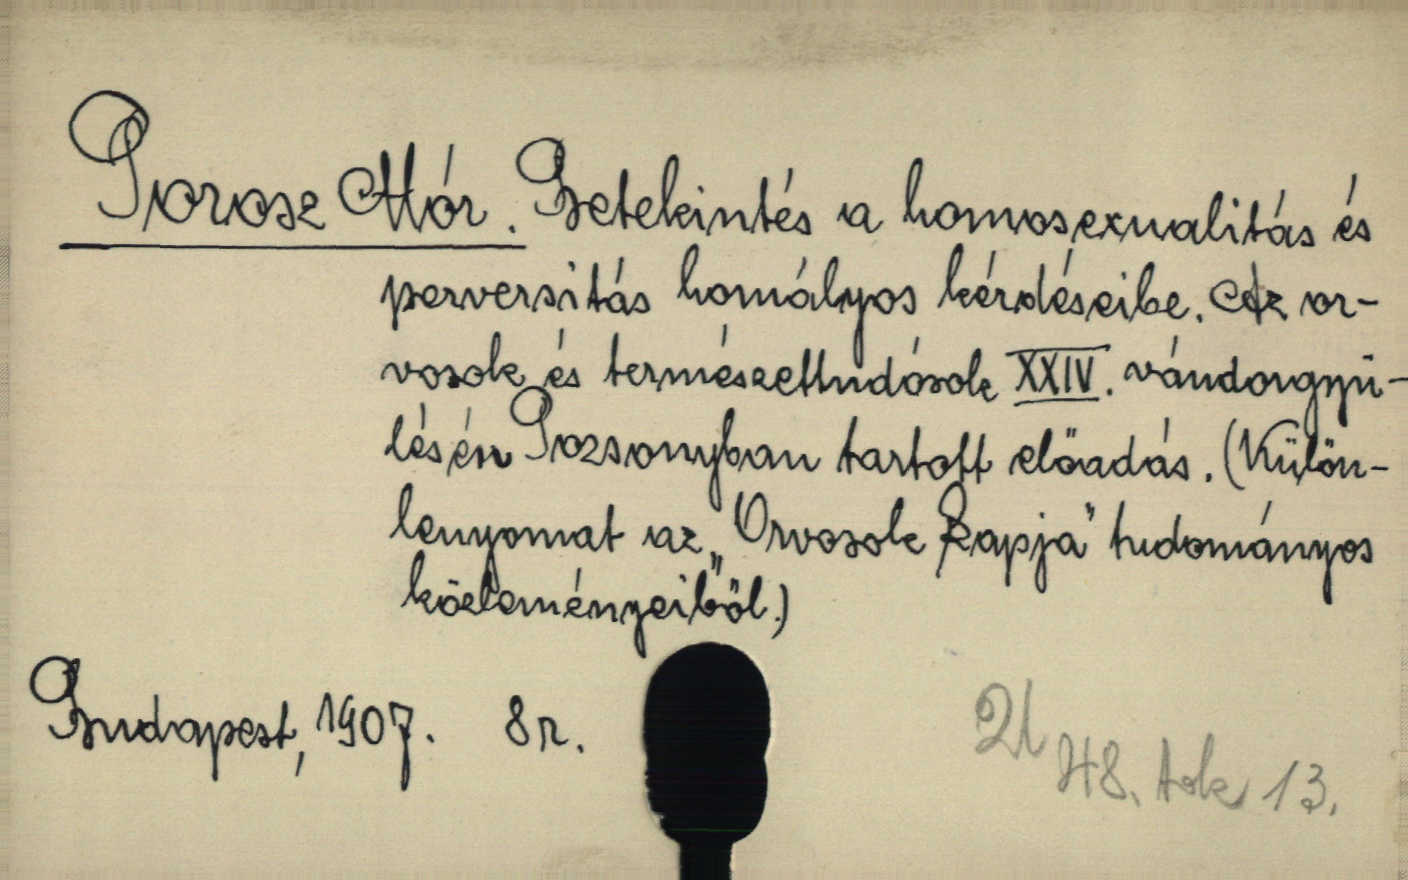 Porosz Mór. Betekintés a homosexualitás és
perversitás homályos kérdéseibe. Az or-
vosok és természettudósok XXIV. vándorgyü-
lésén Pozsonyban tartott előadás. (Külön-
lenyomat az „Orvosok Lapja" tudományos
közleményeiből.)
Budapest, 1907. 8r.
48. tok 13.